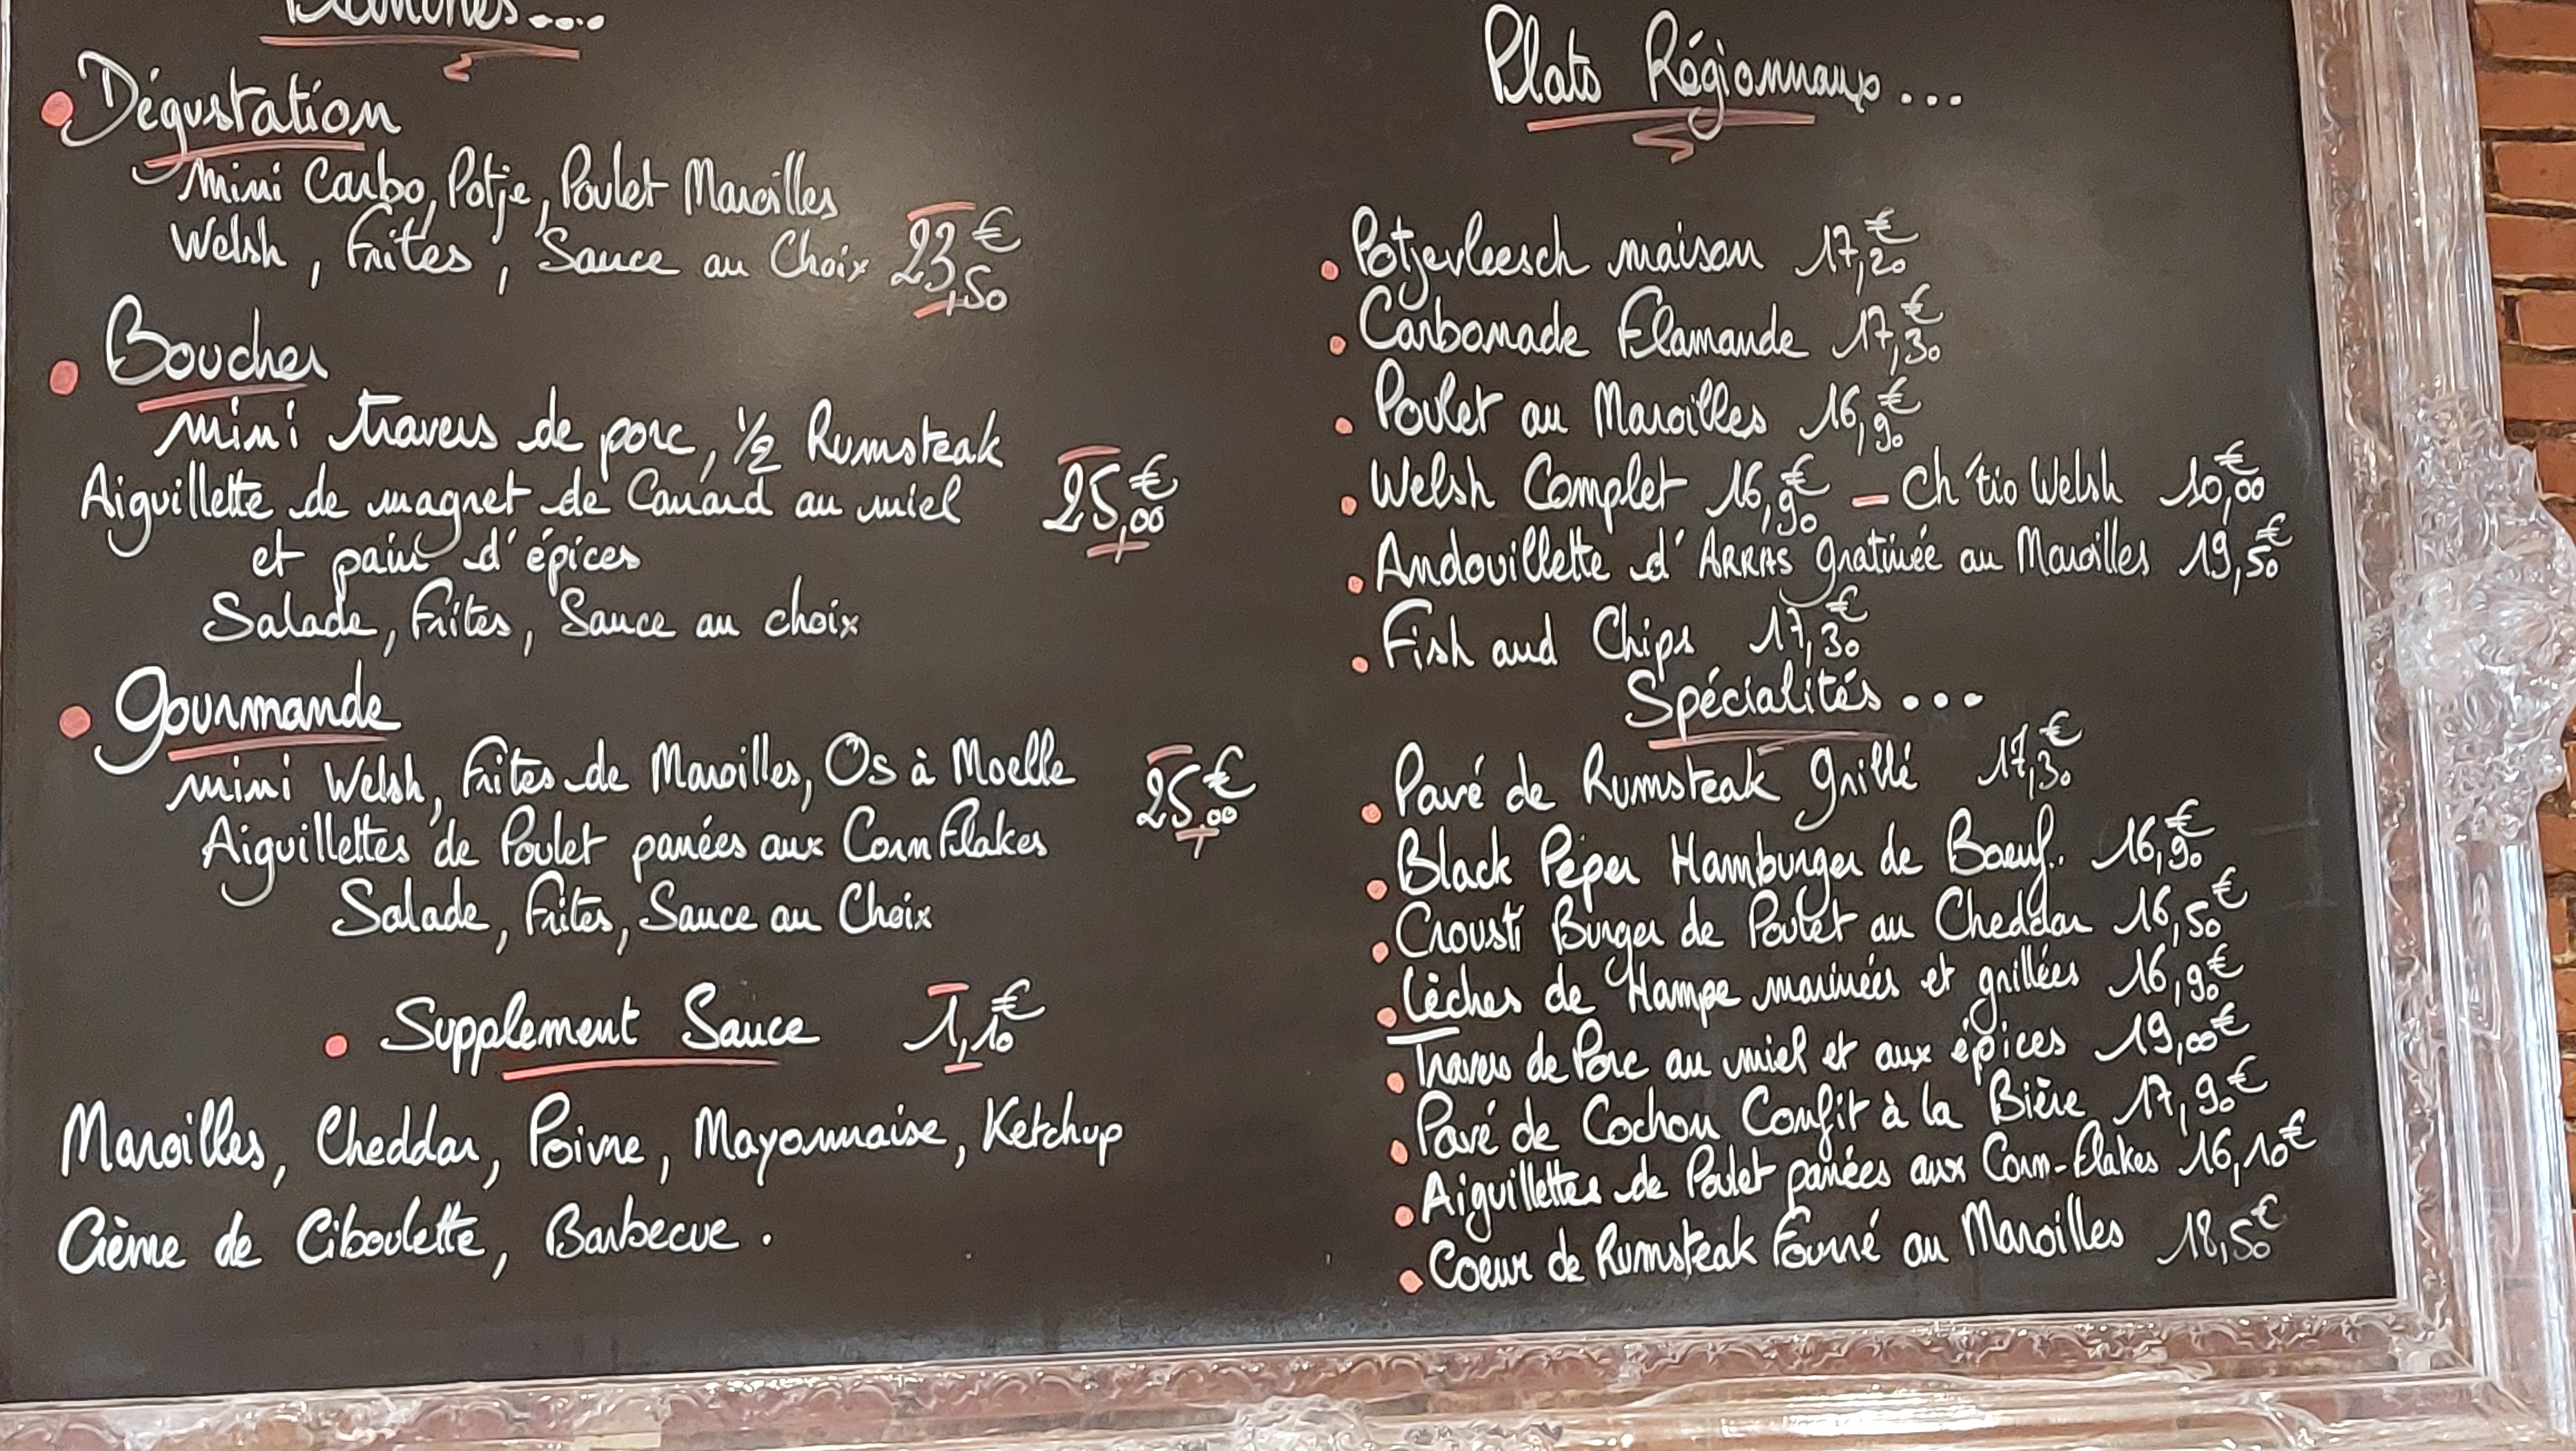 Planches....
Dégustation
mini Carbo, Potje, Poulet Maroilles
Welsh, Frites, Sauce au Choix 23,50€
Boucher
mini travers de porc, 1/2 Rumsteak
Aiguillette de magret de Canard au miel
et pain d'épices
25,00€
Salade, Frites, Sauce au choix
Gourmande
mini Welsh, Frites de Maroilles, Os à Moelle
25,00€
Aiguillettes de Poulet panées aux Corn Flakes
Salade, Frites, Sauce au Choix
Supplement Sauce 1,10€
Maroilles, Cheddar, Poivre, Mayonnaise, Ketchup
Crème de Ciboulette, Barbecue.
Plats Régionnaux...
Potjevleesch maison 17,20€
Carbonade Flamande 17,30€
Poulet au Maroilles 16,90€
Welsh Complet 16,90€ - Ch'tio Welsh 10,00€
Andouillette d'ARRAS gratinée au Maroilles 19,50€
Fish and Chips 17,30€
Spécialités...
Pavé de Rumsteak Grillé 17,30€
Black Péper Hamburger de Boeuf. 16,90€
Crousti Burger de Poulet au Cheddar 16,50€
Lèches de Hampe marinées et grillées 16,90€
Travers de Porc au miel et aux épices 19,00€
Pavé de Cochon Confit à la Bière 17,90€
Aiguillettes de Poulet panées aux Corn-Flakes 16,10€
Coeur de Rumsteak Fourré au Maroilles 18,50€